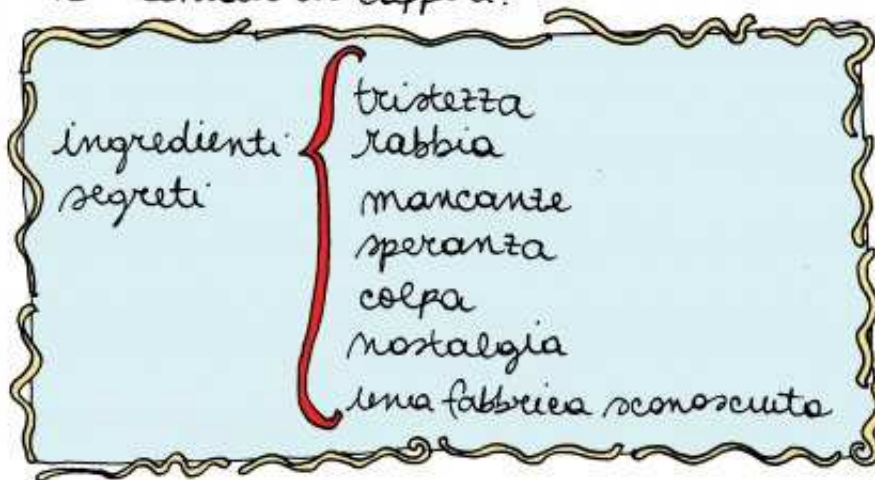 di capperi.
ingredienti
segreti
tristezza
rabbia
mancanze
speranza
colpa
nostalgia
una fabbrica sconosciuta